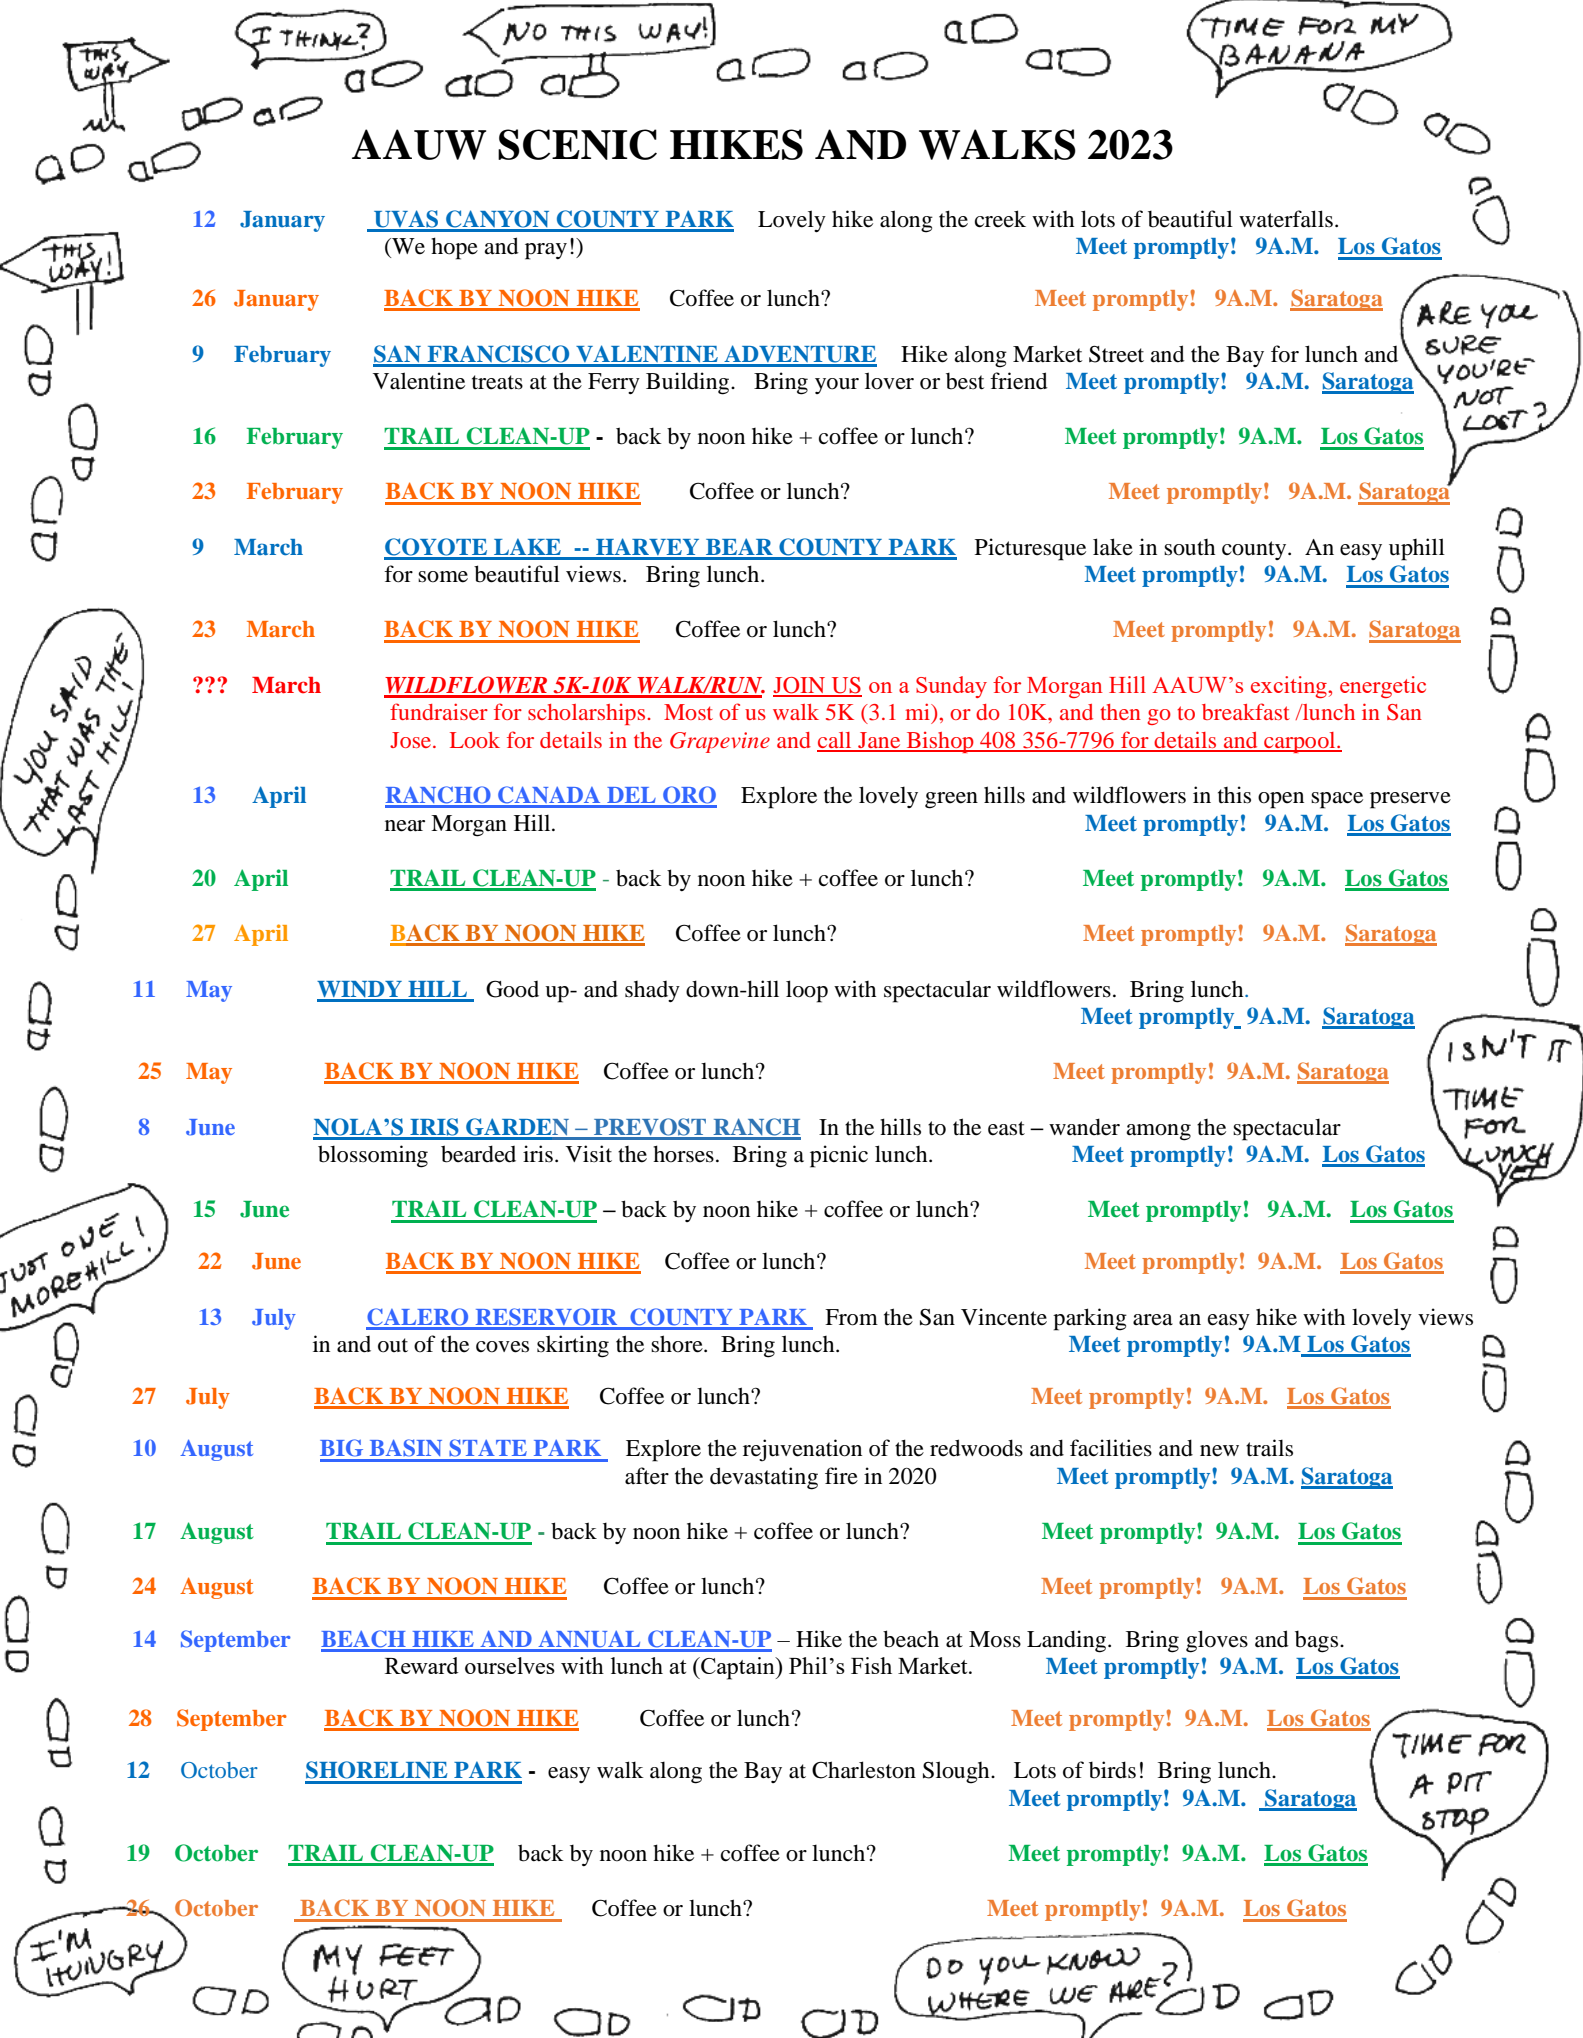 THIS WAY
I THINK?
NO THIS WAY!
TIME FOR MY BANANA
AAUW SCENIC HIKES AND WALKS 2023
12 January UVAS CANYON COUNTY PARK Lovely hike along the creek with lots of beautiful waterfalls.
(We hope and pray!) Meet promptly! 9A.M. Los Gatos
THIS WAY!
26 January BACK BY NOON HIKE Coffee or lunch? Meet promptly! 9A.M. Saratoga
ARE YOU
SURE
YOU'RE
NOT
LOST?
9 February SAN FRANCISCO VALENTINE ADVENTURE Hike along Market Street and the Bay for lunch and
Valentine treats at the Ferry Building. Bring your lover or best friend Meet promptly! 9A.M. Saratoga
16 February TRAIL CLEAN-UP - back by noon hike + coffee or lunch? Meet promptly! 9A.M. Los Gatos
23 February BACK BY NOON HIKE Coffee or lunch? Meet promptly! 9A.M. Saratoga
9 March COYOTE LAKE -- HARVEY BEAR COUNTY PARK Picturesque lake in south county. An easy uphill
for some beautiful views. Bring lunch. Meet promptly! 9A.M. Los Gatos
23 March BACK BY NOON HIKE Coffee or lunch? Meet promptly! 9A.M. Saratoga
YOU SAID
THAT WAS THE
LAST HILL!
??? March WILDFLOWER 5K-10K WALK/RUN. JOIN US on a Sunday for Morgan Hill AAUW's exciting, energetic
fundraiser for scholarships. Most of us walk 5K (3.1 mi), or do 10K, and then go to breakfast /lunch in San
Jose. Look for details in the Grapevine and call Jane Bishop 408 356-7796 for details and carpool.
13 April RANCHO CANADA DEL ORO Explore the lovely green hills and wildflowers in this open space preserve
near Morgan Hill. Meet promptly! 9A.M. Los Gatos
20 April TRAIL CLEAN-UP - back by noon hike + coffee or lunch? Meet promptly! 9A.M. Los Gatos
27 April BACK BY NOON HIKE Coffee or lunch? Meet promptly! 9A.M. Saratoga
11 May WINDY HILL Good up- and shady down-hill loop with spectacular wildflowers. Bring lunch.
Meet promptly 9A.M. Saratoga
ISN'T IT
TIME
FOR
LUNCH
YET
25 May BACK BY NOON HIKE Coffee or lunch? Meet promptly! 9A.M. Saratoga
8 June NOLA'S IRIS GARDEN – PREVOST RANCH In the hills to the east – wander among the spectacular
blossoming bearded iris. Visit the horses. Bring a picnic lunch. Meet promptly! 9A.M. Los Gatos
15 June TRAIL CLEAN-UP – back by noon hike + coffee or lunch? Meet promptly! 9A.M. Los Gatos
JUST ONE
MORE HILL!
22 June BACK BY NOON HIKE Coffee or lunch? Meet promptly! 9A.M. Los Gatos
13 July CALERO RESERVOIR COUNTY PARK From the San Vincente parking area an easy hike with lovely views
in and out of the coves skirting the shore. Bring lunch. Meet promptly! 9A.M Los Gatos
27 July BACK BY NOON HIKE Coffee or lunch? Meet promptly! 9A.M. Los Gatos
10 August BIG BASIN STATE PARK Explore the rejuvenation of the redwoods and facilities and new trails
after the devastating fire in 2020 Meet promptly! 9A.M. Saratoga
17 August TRAIL CLEAN-UP - back by noon hike + coffee or lunch? Meet promptly! 9A.M. Los Gatos
24 August BACK BY NOON HIKE Coffee or lunch? Meet promptly! 9A.M. Los Gatos
14 September BEACH HIKE AND ANNUAL CLEAN-UP – Hike the beach at Moss Landing. Bring gloves and bags.
Reward ourselves with lunch at (Captain) Phil's Fish Market. Meet promptly! 9A.M. Los Gatos
28 September BACK BY NOON HIKE Coffee or lunch? Meet promptly! 9A.M. Los Gatos
TIME FOR
A PIT
STOP
12 October SHORELINE PARK - easy walk along the Bay at Charleston Slough. Lots of birds! Bring lunch.
Meet promptly! 9A.M. Saratoga
19 October TRAIL CLEAN-UP back by noon hike + coffee or lunch? Meet promptly! 9A.M. Los Gatos
26 October BACK BY NOON HIKE Coffee or lunch? Meet promptly! 9A.M. Los Gatos
I'M
HUNGRY
MY FEET
HURT
DO YOU KNOW
WHERE WE ARE?